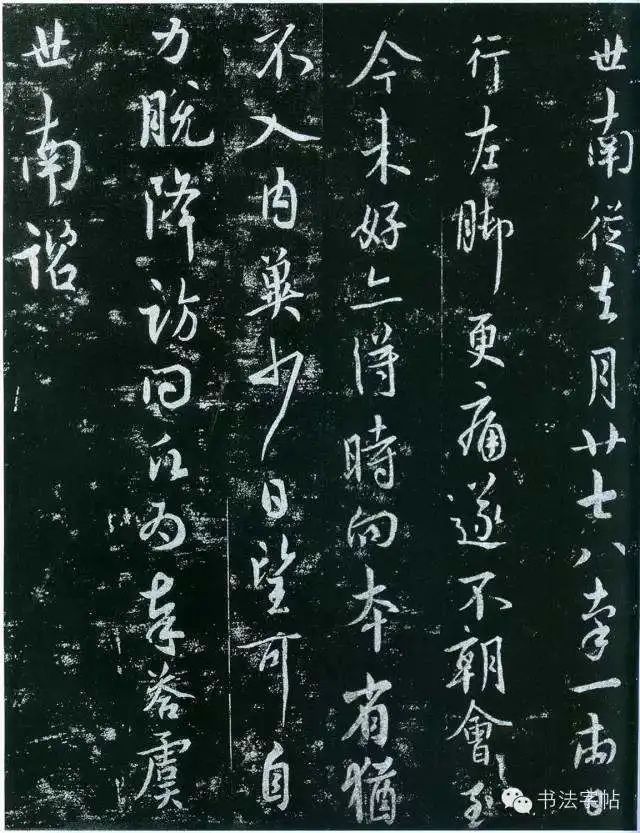 世南從去月廿七八率一兩日
行左脚更痛遂不朝會至
今未好亦得時向本省猶
不入内冀少日望可自
力脱降訪問願為奉答虞
世南諮
书法字帖